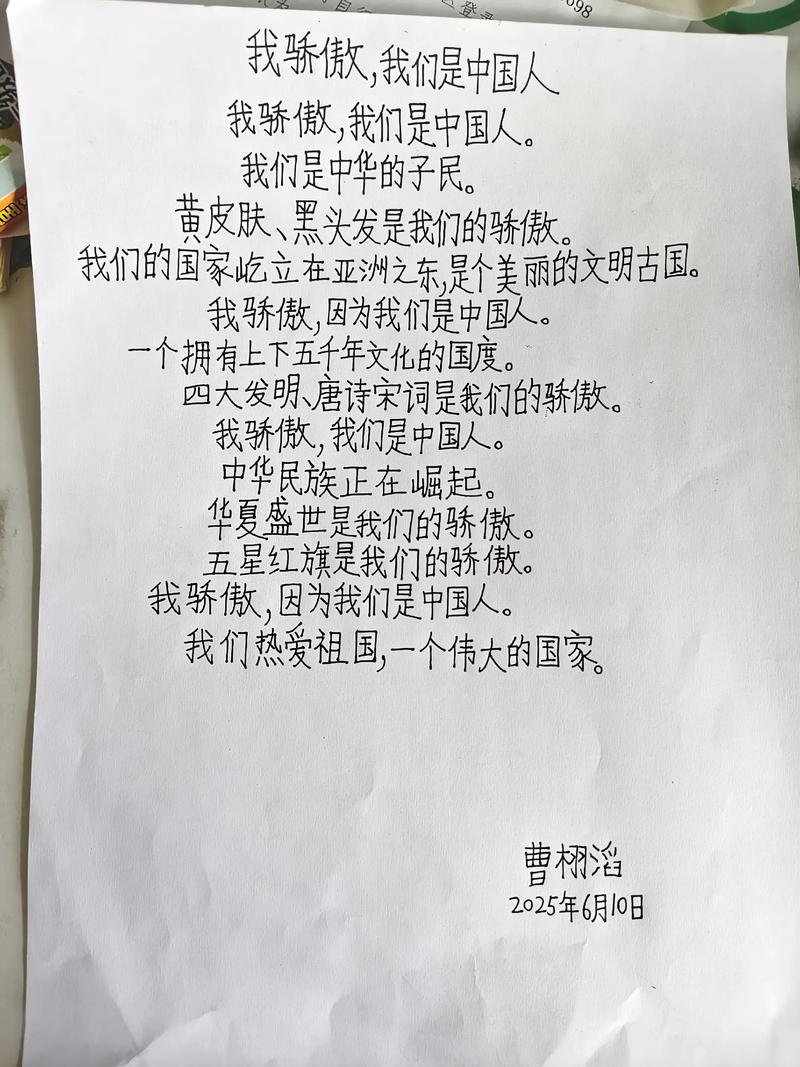 登录
098
我骄傲,我们是中国人
我骄傲,我们是中国人。
我们是中华的子民。
黄皮肤、黑头发是我们的骄傲。
我们的国家屹立在亚洲之东,是个美丽的文明古国。
我骄傲,因为我们是中国人。
一个拥有上下五千年文化的国度。
四大发明、唐诗宋词是我们的骄傲。
我骄傲,我们是中国人。
中华民族正在崛起。
华夏盛世是我们的骄傲。
五星红旗是我们的骄傲。
我骄傲,因为我们是中国人。
我们热爱祖国,一个伟大的国家。
曹栩滔
2025年6月10日